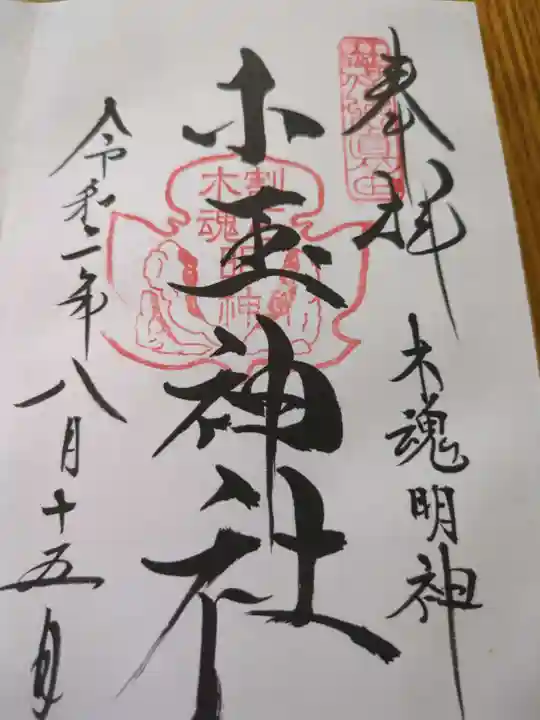 奉拝
木魂明神
木玉神社
割
木魂明神
令和二年八月十五日